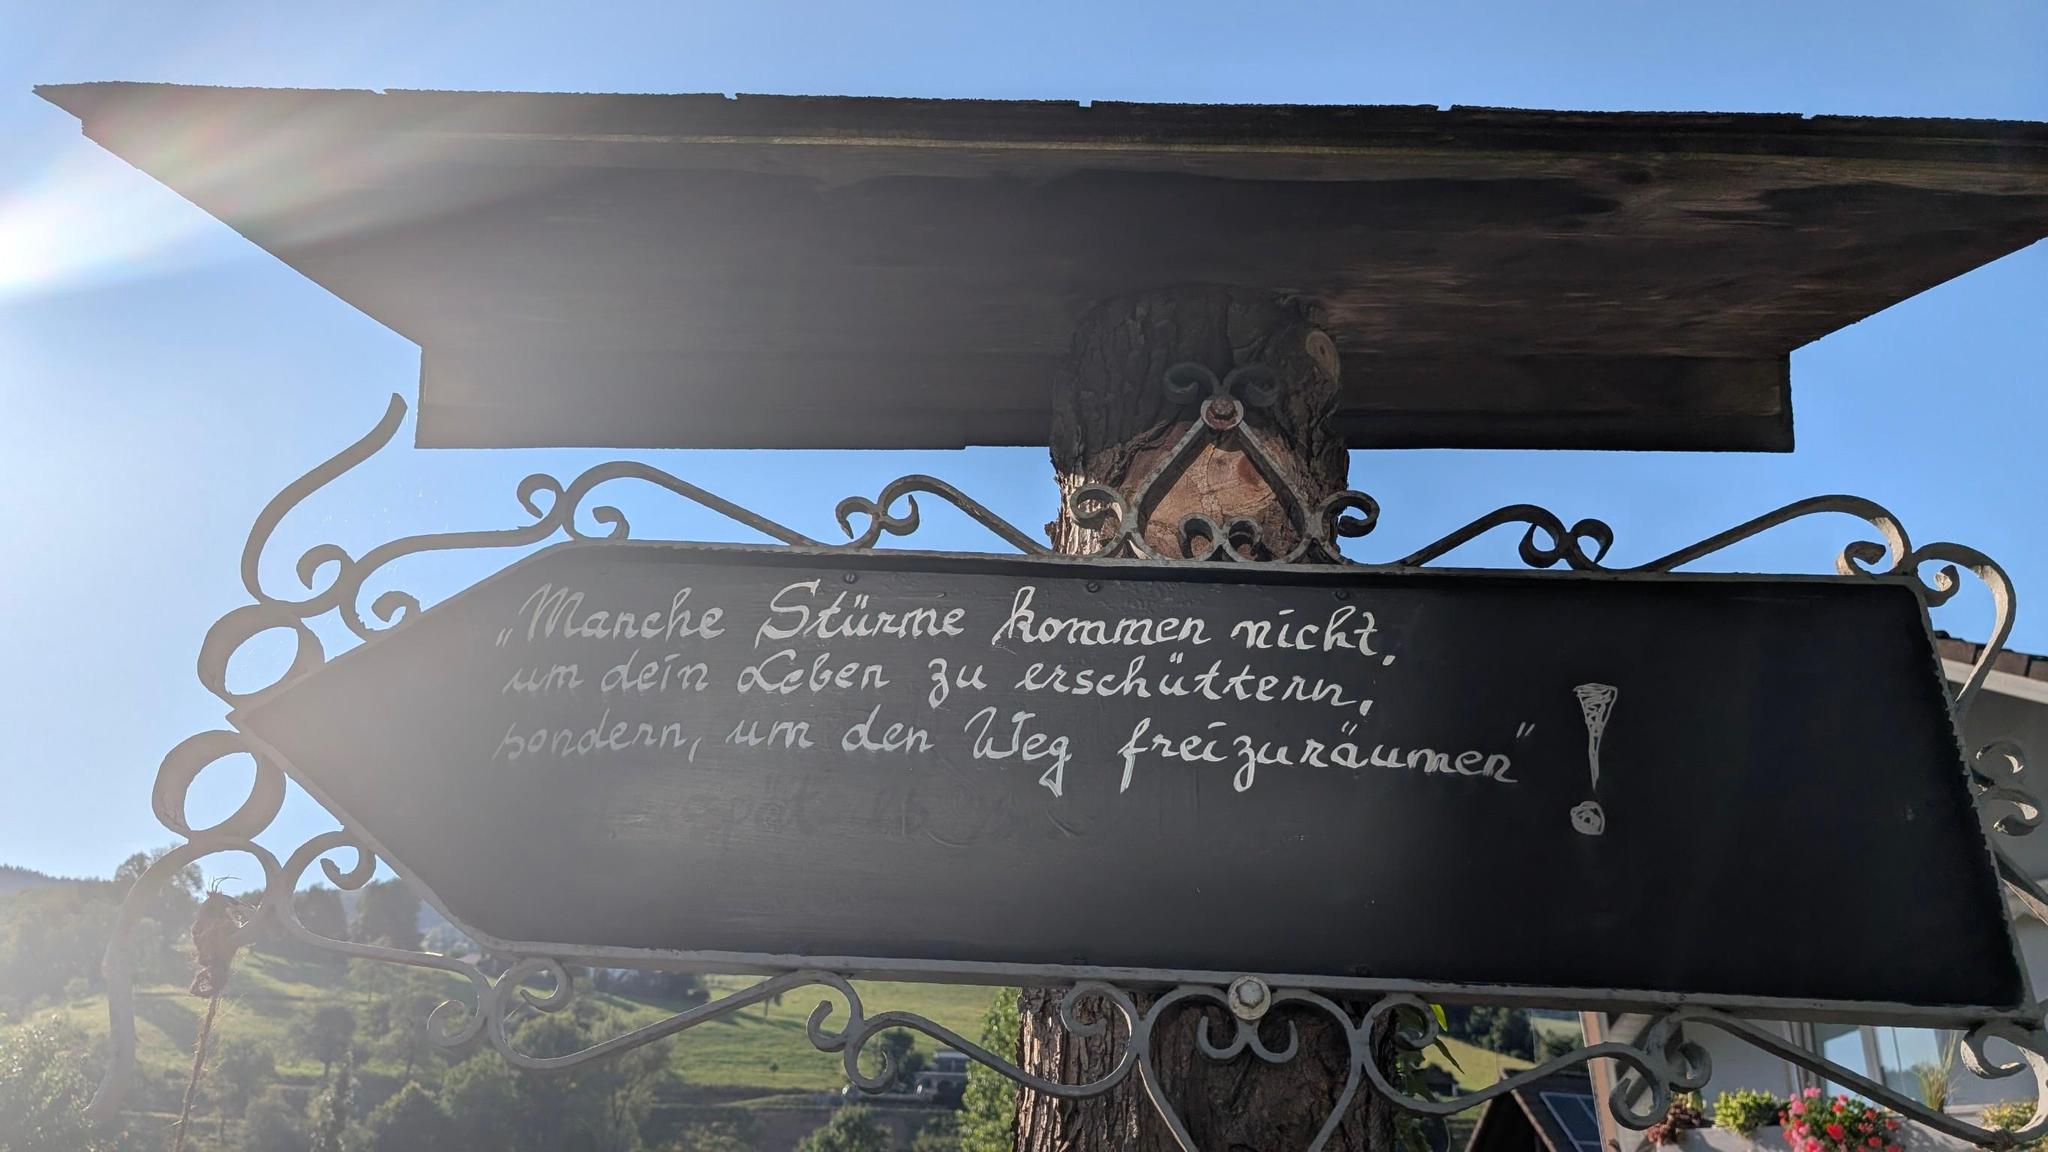 „Manche Stürme kommen nicht,
um dein Leben zu erschüttern,
sondern, um den Weg freizuräumen" !